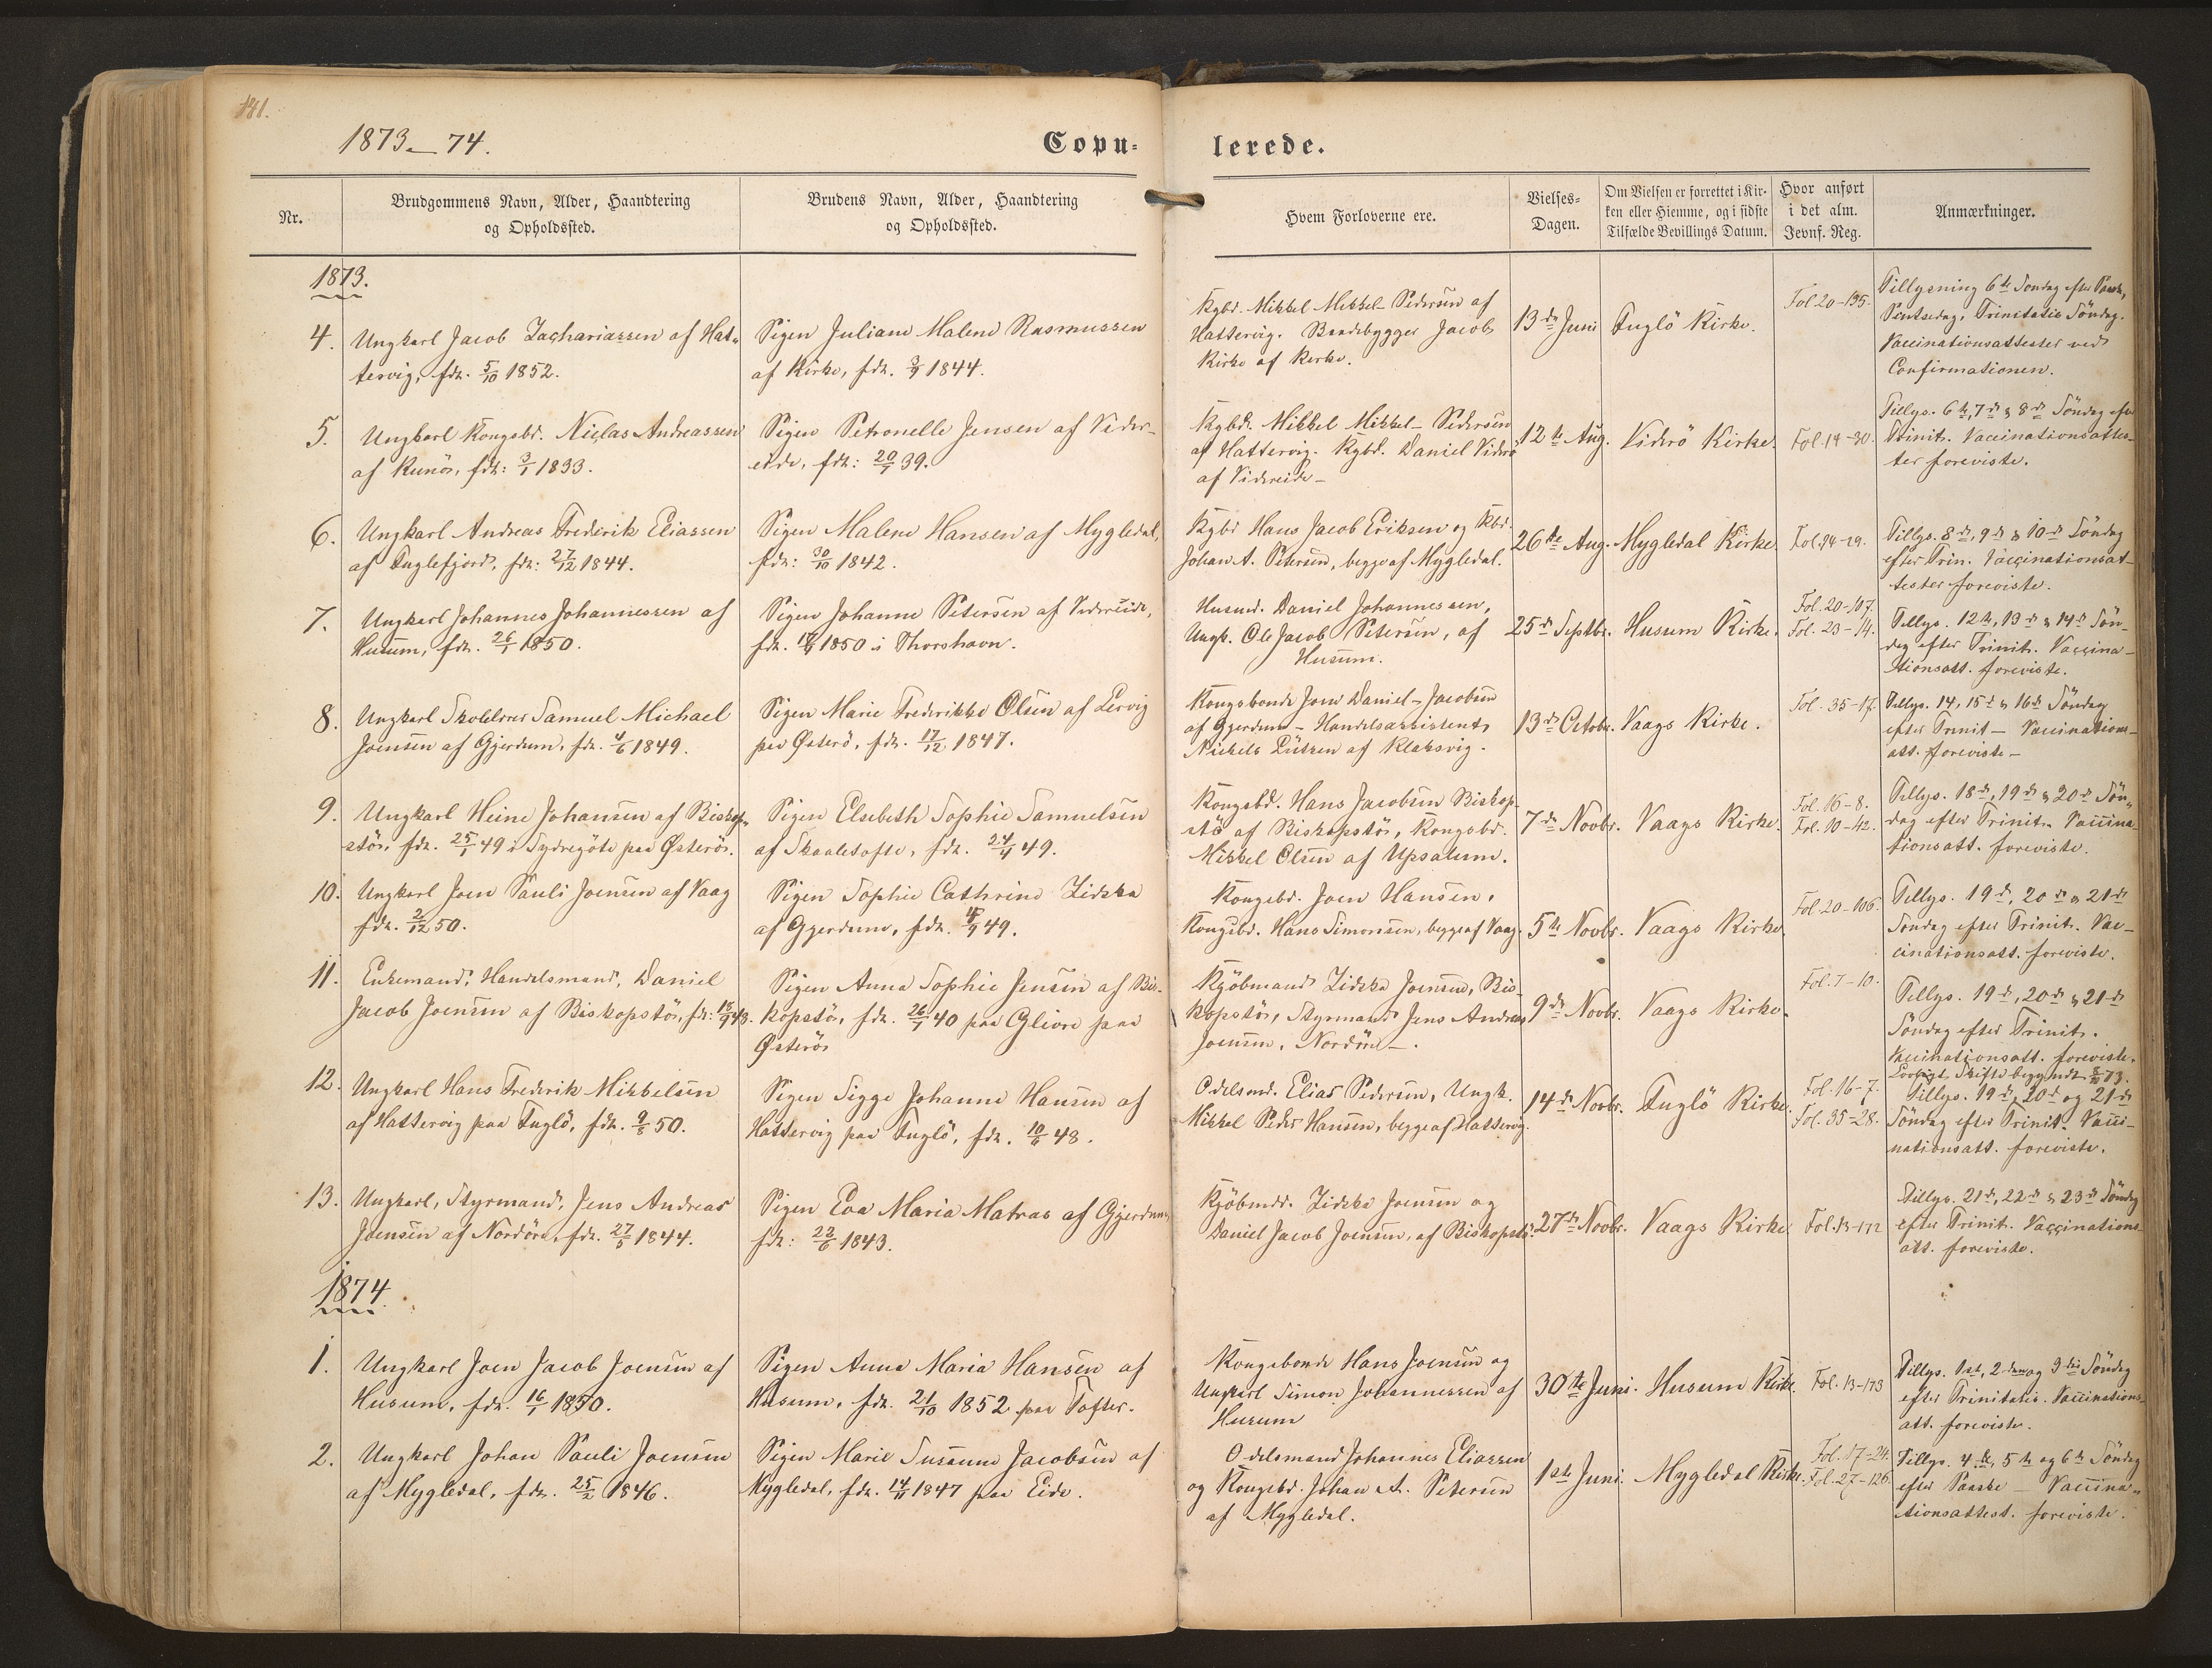 141.
1873 – 74.
Copu-
lerede.
Nr.
Brudgommens Navn, Alder, Haandtering
og Opholdssted.
Brudens Navn, Alder, Haandtering
og Opholdssted.
Hvem Forloverne ere.
Vielses-
Dagen.
Om Vielsen er forrettet i Kir-
ken eller Hiemme, og i sidste
Tilfælde Bevillings Datum.
Hvor anført
i det alm.
Jevnf. Reg.
Anmærkninger.
1873.
4.
Ungkarl Jacob Zachariassen af Hat-
tervig, fdt. 5/10 1852.
Pigen Juliane Malene Rasmussen
af Kirke, fdt. 3/9 1844.
Kgbd. Mikkel Mikkel-Pedersen af
Hattervig. Baadebygger Jacob
Kirke af Kirke.
13de Juni
Fuglö Kirke.
Fol 20-195.
Tillysning 6te Söndag efter Paaske,
Pintsedag, Trinitatis Söndag.
Vaccinationsattester ved
Confirmationen.
5.
Ungkarl Kongsbd. Niclas Andreassen
af Kunö, fdt: 3/1 1833.
Pigen Petronelle Jensen af Vider-
eide, fdt: 20/1 39.
Kgbd. Mikkel Mikkel-Pedersen
af Hattervig. Kgbd. Daniel Viderö
af Videreide –
12te Aug.
Viderö Kirke.
Fol. 14-30.
Tillys. 6te, 7de & 8de Söndag efter
Trinit. Vaccinationsattes-
ter foreviste.
6.
Ungkarl Andreas Frederik Eliassen
af Fuglefjord, fdt: 27/12 1844.
Pigen Malene Hansen af Mygledal,
fdt: 30/10 1842.
Kgbd Hans Jacob Eriksen og Kbd.
Johan A. Petersen, begge af Mygledal.
26de Aug.
Mygledal Kirke.
Fol. 24-29.
Tillys. 8de, 9de & 10de Söndag
efter Trin. Vaccinationsat-
tester foreviste.
7.
Ungkarl Johannes Johannessen af
Husum, fdt. 26/1 1850.
Pigen Johanne Petersen af Videreide,
1850 i Thorshavn.
Husmd. Daniel Johannessen,
Ungk. Ole Jacob Petersen, af
Husum.
25de Septbr.
Husum Kirke.
Fol. 20-107.
Fol. 23-14.
Tillys. 12te, 13de & 14de Sön-
dag efter Trinit. Vaccina-
tionsatt. foreviste.
8.
Ungkarl Skolelærer Samuel Michael
Joensen af Gjerdum, fdt. 4/6 1849.
Pigen Marie Frederikke Olsen af Lervig
paa Österö, fdt. 17/12 1847.
Kongsbonde Joen Daniel-Jacobsen
af Gjerdum – Handelsassistent
Nickels Lützen af Klaksvig.
13de Octobr.
Vaags Kirke.
Fol. 35-17.
Tillys. 14, 15de & 16de Söndag
efter Trinit – Vaccinations-
att. foreviste –
9.
Ungkarl Heine Johansen af Biskop-
stö, fdt. 25/1 49 i Sydregöte paa Österö.
Pigen Elsebeth Sophie Samuelsen
af Skaaletofte, fdt. 24/4 49.
Kongsbd. Hans Jacobsen Biskop-
stö af Biskopstö, Kongsbd.
Mikkel Olsen af Upsalum.
7de Novbr.
Vaags Kirke.
Fol. 16-8.
Fol. 10-42.
Tillys. 18de, 19de & 20de Sön-
dag efter Trinit. Vaccina-
tionsatt. foreviste.
10.
Ungkarl Joen Pauli Joensen af Vaag
fdt. 2/12 50.
Pigen Sophie Cathrine Zidska
af Gjerdum, fdt. 49.
Kongsbd. Joen Hansen.
Kongsbd. Hans Simonsen, begge af Vaag.
5te Novbr.
Vaags Kirke.
Fol 20-106.
Tillys. 19de, 20de & 21de
Söndag efter Trinit. Vac-
cinationsatt. foreviste.
11.
Enkemand, Handelsmand, Daniel
Jacob Joensen af Biskopstö, fdt: 18/9 43.
Pigen Anna Sophie Jensen af Bis-
kopstö, fdt. 26/1 40 paa Glivre paa
Österö
Kjöbmand Zidska Joensen, Bis-
kopstö, Styrmand Jens Andreas
Joensen, Nordöre –.
9de Novbr.
Vaags Kirke.
Fol. 7-10.
Tillys. 19de, 20de & 21de
Söndag efter Trinit.
Vaccinationsatt. foreviste.
Lovligt Skifte begyndt 73.
12.
Ungkarl Hans Frederik Mikkelsen
af Hattervig paa Fuglö, fdt. 9/8 50.
Pigen Sigge Johanne Hansen af
Hattervig paa Fuglö, fdt. 10/6 48.
Odelsmd. Elias Pedersen, Ungk.
Mikkel Peder Hansen, begge af Hattervig.
14de Novbr.
Fuglö Kirke.
Fol. 16-7.
Fol. 35-28.
Tillys. 19de, 20de og 21de
Söndag efter Trinit. Vacci-
nationsatt. foreviste.
13.
Ungkarl, Styrmand, Jens Andreas
Joensen af Nordöre, fdt. 27/5 1844.
Pigen Eva Maria Matras af Gjerdum,
fdt: 23/6 1843.
Kjöbmd. Zidska Joensen og
Daniel Jacob Joensen, af Biskopstö.
27de Novbr.
Vaags Kirke.
Fol. 13-172
Tillys. 21de, 22de & 23de Söndag
efter Trinit. Vaccinations-
att. foreviste.
1874.
1.
Ungkarl Joen Jacob Joensen af
Husum, fdt. 16/1 1850.
Pigen Anna Maria Hansen af
Husum, fdt. 21/10 1852 paa Tofter.
Kongsbonde Hans Joensen og
Ungkarl Simon Johannessen af
Husum
30te Juni.
Husum Kirke.
Fol. 13-173
Tillys. 1ste, 2den og 3die Söndag
efter Trinitatis. Vaccinations-
att. foreviste.
2.
Ungkarl Johan Pauli Joensen
af Mygledal, fdt. 25/2 1846.
Pigen Marie Susanne Jacobsen af
Mygledal, fdt. 14/11 1847 paa Eide.
Odelsmand Johannes Eliassen
og Kongsbd. Johan A. Petersen
af Mygledal.
1ste Juni.
Mygledal Kirke.
Fol. 17-24.
Fol. 27-126.
Tillys. 4de, 5te og 6te Söndag
efter Paaske – Vaccina-
tionsattest. foreviste.